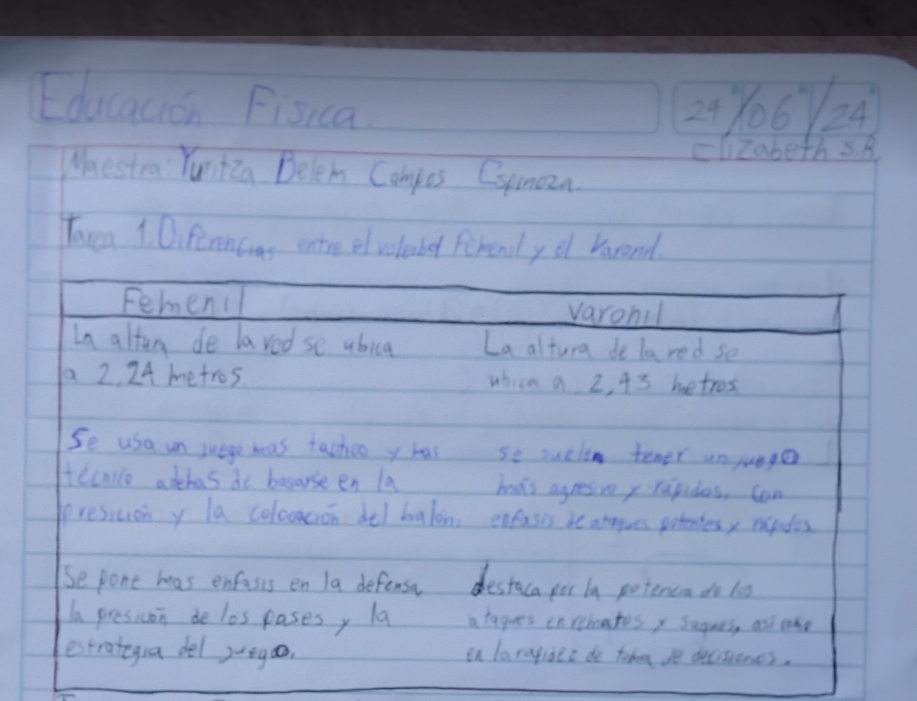 Educación Fisica.
24/06/24
Elizabeth S.R
Maestra: Yuritza Belem Campos Espinoza.
Tarea 1. Diferencias entre el voleibol femenil y el varonil.
Femenil varonil
La altura de la red se ubica La altura de la red se
a 2,24 metros ubica a 2,43 metros
Se usa un juego mas tactico y mas se suelen tener un juego
técnico ademas de basarse en la más agresivo y rápidos, con
presición y la colocación del balón. enfasis de ataques potentes y rápidos
Se pone mas enfasis en la defensa, destaca por la potencia de los
la presición de los pases y la ataques en remates y saques, asi como
estrategia del juego. en la rapidez de toma de decisiones.